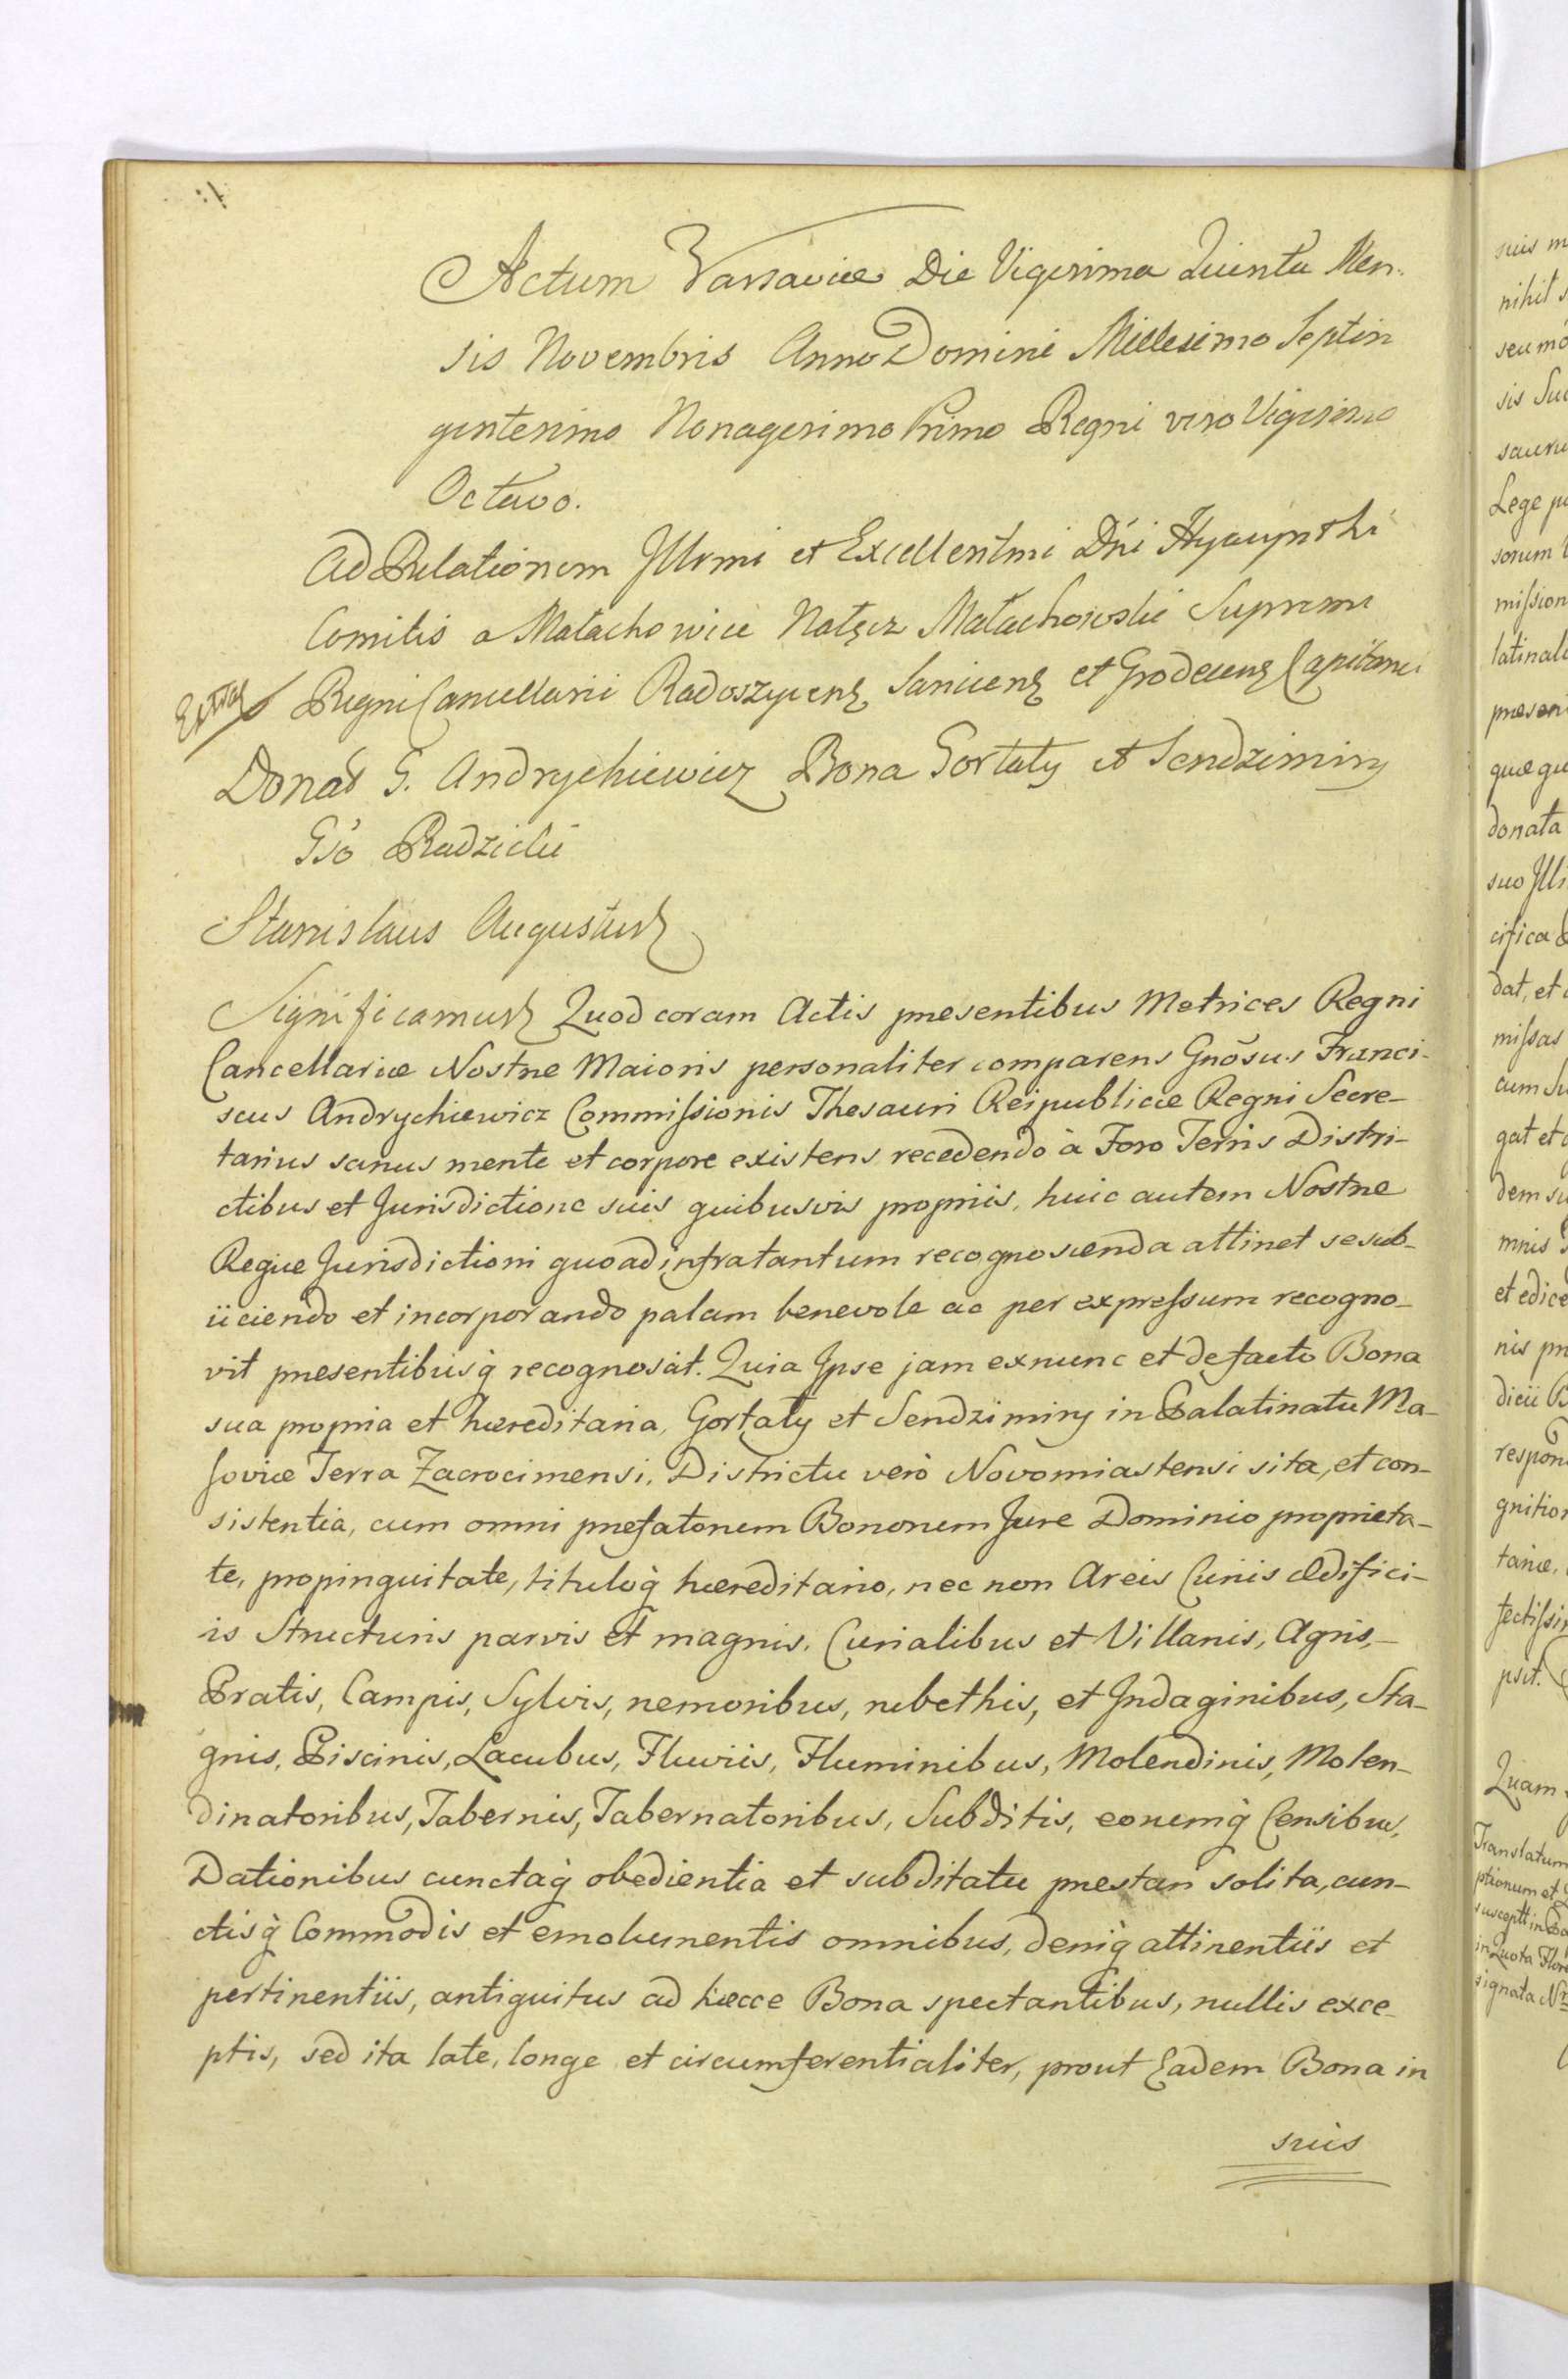 Actum Varsaviæ Die Vigesima Quinta Men-
sis Novembris Anno Domini Millesimo Septin
gentesimo Nonagesimo Primo Regni vero Vigesimo
Octavo.
Ad Relationem Jllrmi et Excellentmi Dńi Hyacynthi
Comitis a Małachowice Nałęcz Małachowski Supremi
Regni Cancellarii Radoszycens, Sanicens et Grodecens Capitanei
Extrad
Donat G. Andrychiewicz Bona Gortaty et Sendzimiry
Gsō Radzicki
Stanislaus Augustus
Significamus Quod coram Actis præsentibus Metrices Regni
Cancellariæ Nostræ Maioris personaliter comparens Gnōsus Franci-
scus Andrychiewicz Commissionis Thesauri Reipublicæ Regni Secre-
tarius sanus mente et corpore existens recedendo à Foro Terris Distri-
ctibus et Jurisdictione suis quibusvis propriis, huic autem Nostræ
Regiæ Jurisdictioni quoad infratantum recognoscenda attinet se sub-
iiciendo et incorporando palam benevole ac per expressum recogno-
vit præsentibusq̀ recognoscit. Quia Jpse jam exnunc et de facto Bona
sua propria et hæreditaria, Gortaty et Sendzimiry in Palatinatu Ma-
soviæ Terra Zacrocimensi, Districtu verò Novomiastensi sita, et con-
sistentia, cum omni præfatorum Bonorum Jure Dominio proprieta-
te, propinquitate, tituloq̀ hæreditario, nec non Areis Curiis Ædifici-
is Structuris parvis et magnis, Curialibus et Villanis, Agris,-
Pratis, Campis, Sylvis, nemoribus, rubethis, et Jndaginibus, Sta-
gnis, Piscinis, Lacubus, Fluviis, Fluminibus, Molendinis, Molen-
dinatoribus, Tabernis, Tabernatoribus, Subditis, eorumq̀ Censibus,
Dationibus cunctaq̀ obedientia et subditatu præstari solita, cun-
ctisq̀ Commodis et emolumentis omnibus, deniq̀ attinentiis et
pertinentiis, antiquitus ad hæcce Bona spectantibus, nullis exce-
ptis, sed ita late, longe et circumferentialiter, prout Eadem Bona in
suis